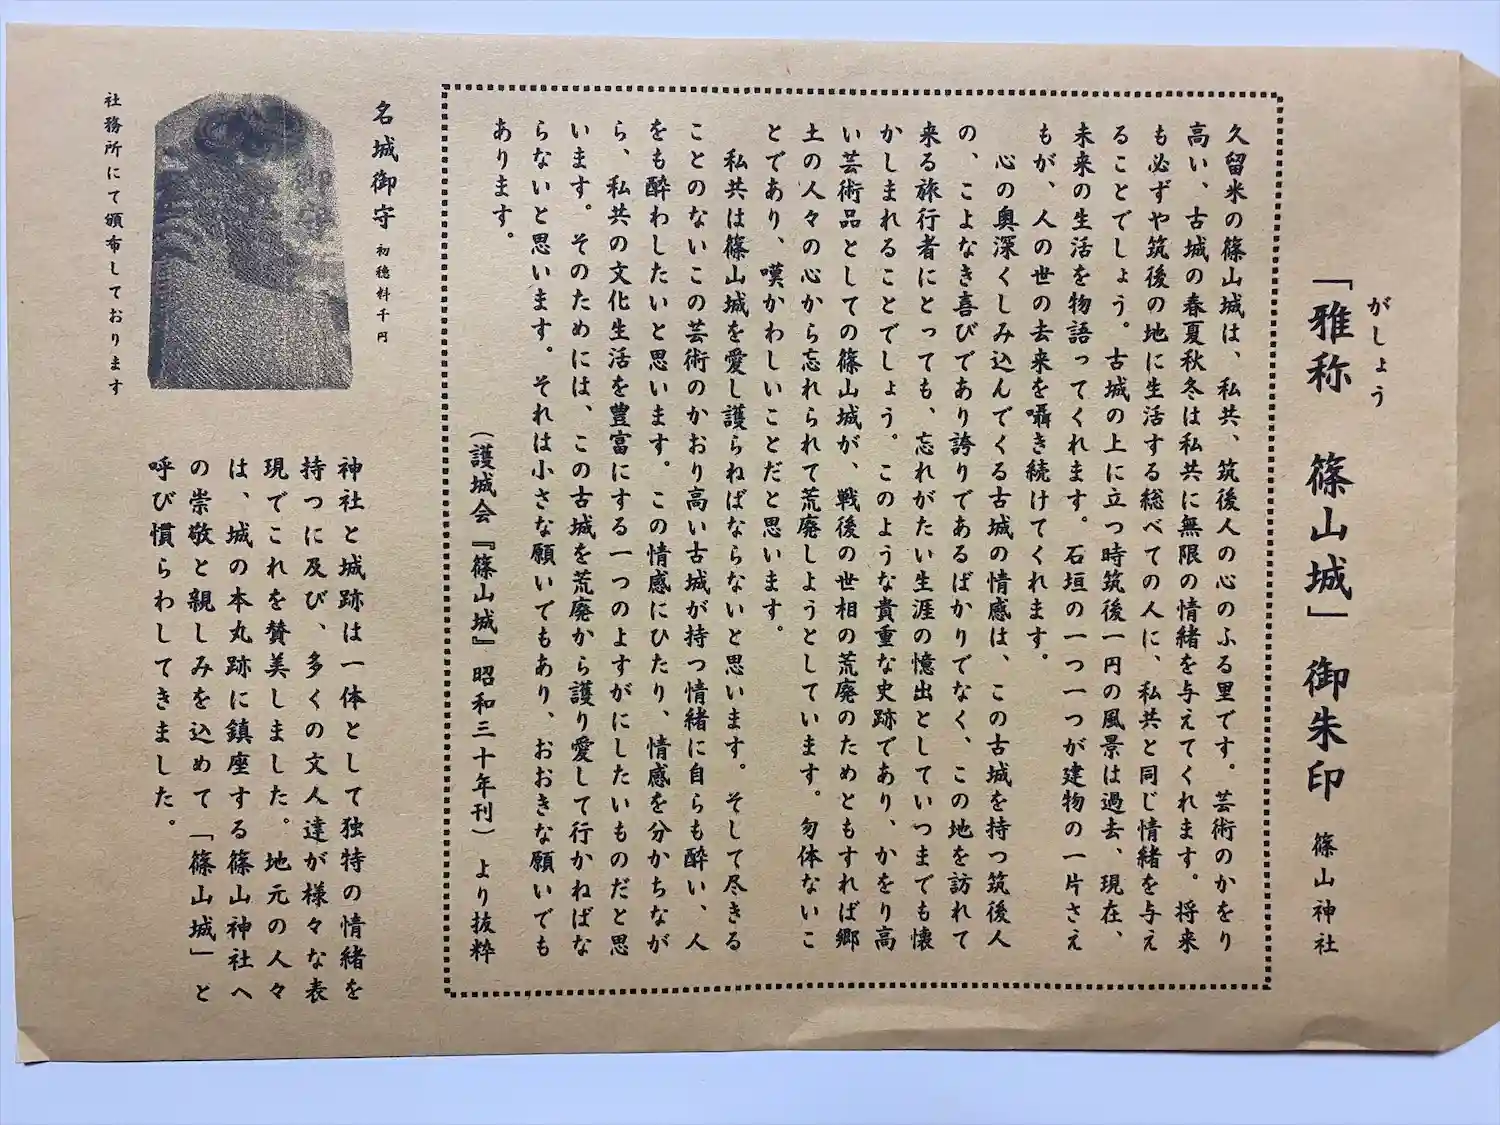 がしょう
「雅称 篠山城」御朱印 篠山神社
久留米の篠山城は、私共、筑後人の心のふる里です。芸術のかをり
高い、古城の春夏秋冬は私共に無限の情緒を与えてくれます。将来
も必ずや筑後の地に生活する総べての人に、私共と同じ情緒を与え
ることでしょう。古城の上に立つ時筑後一円の風景は過去、現在、
未来の生活を物語ってくれます。石垣の一つ一つが建物の一片さえ
もが、人の世の去来を囁き続けてくれます。
心の奥深くしみ込んでくる古城の情感は、この古城を持つ筑後人
の、こよなき喜びであり誇りであるばかりでなく、この地を訪れて
来る旅行者にとっても、忘れがたい生涯の憶出としていつまでも懐
かしまれることでしょう。このような貴重な史跡であり、かをり高
い芸術品としての篠山城が、戦後の世相の荒廃のためともすれば郷
土の人々の心から忘れられて荒廃しようとしています。勿体ないこ
とであり、嘆かわしいことだと思います。
私共は篠山城を愛し護らねばならないと思います。そして尽きる
ことのないこの芸術のかおり高い古城が持つ情緒に自らも酔い、人
をも酔わしたいと思います。この情感にひたり、情感を分かちなが
ら、私共の文化生活を豊富にする一つのよすがにしたいものだと思
います。そのためには、この古城を荒廃から護り愛して行かねばな
らないと思います。それは小さな願いでもあり、おおきな願いでも
あります。
(護城会『篠山城』昭和三十年刊)より抜粋
名城御守 初穂料千円
社務所にて頒布しております
神社と城跡は一体として独特の情緒を
持つに及び、多くの文人達が様々な表
現でこれを賛美しました。地元の人々
は、城の本丸跡に鎮座する篠山神社へ
の崇敬と親しみを込めて「篠山城」と
呼び慣らわしてきました。